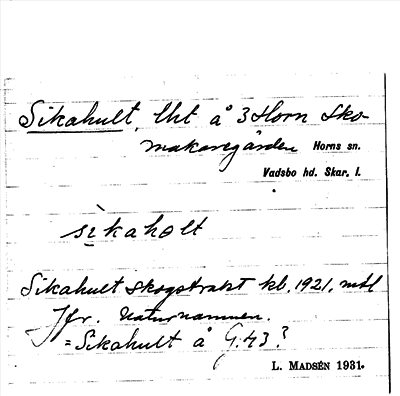 Sikahult, lht å 3 Horn Sko-
makaregården Horns sn.
Vadsbo hd. Skar. l.
sìkaholt
Sikahult skogstrakt kb. 1921, mtl
Jfr. Naturnamnen.
= Sikahult å G:43?
L. MADSÉN 1931.